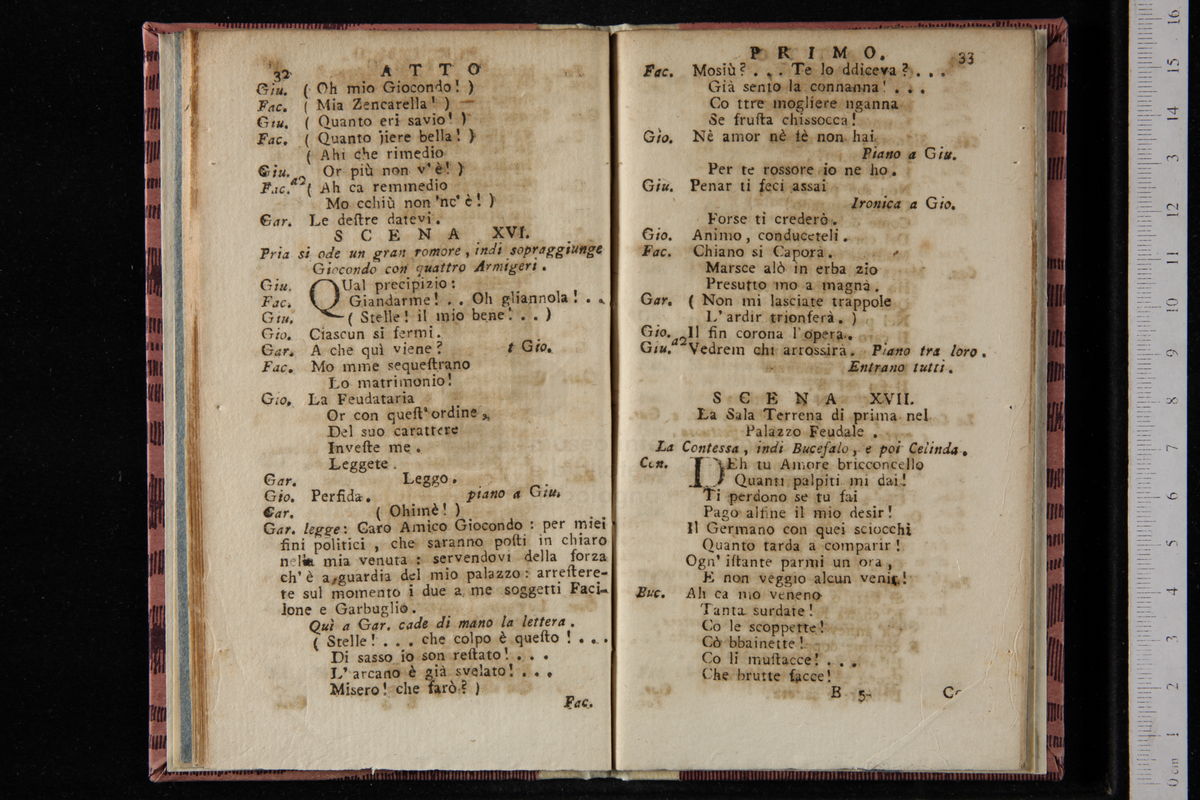 32 ATTO
Giu. ( Oh mio Giocondo! )
Fac. ( Mia Zencarella! )
Giu. ( Quanto eri savio! )
Fac. ( Quanto jiere bella! )
( Ahi che rimedio
Giu. Or più non v'è! )
Fac. a2 ( Ah ca remmedio
Mo cchiù non 'nc' è! )
Gar. Le deſtre datevi.
SCENA XVI.
Pria si ode un gran romore, indi sopraggiunge
Giocondo con quattro Armigeri.
Giu. QUal precipizio:
Fac. Giandarme! . . Oh gliannola! . .
Giu. ( Stelle! il mio bene! . . )
Gio. Ciascun si fermi.
Gar. A che quì viene? t Gio.
Fac. Mo mme sequeſtrano
Lo matrimonio!
Gio. La Feudataria
Or con queſt' ordine,
Del suo carattere
Inveſte me.
Leggete.
Gar. Leggo.
Gio. Perfida. piano a Giu.
Gar. ( Ohimè! )
Gar. legge: Caro Amico Giocondo: per miei
fini politici, che saranno poſti in chiaro
nella mia venuta: servendovi della forza
ch' è a guardia del mio palazzo: arreſtere-
te sul momento i due a me soggetti Faci-
lone e Garbuglio.
Quì a Gar. cade di mano la lettera.
( Stelle! . . . che colpo è queſto! . . .
Di sasso io son reſtato! . . .
L' arcano è già svelato! . . .
Misero! che farò? )
Fac.
PRIMO. 33
Fac. Mosiù? . . . Te lo ddiceva? . . .
Già sento la connanna! . . .
Co ttre mogliere nganna
Se fruſta chissocca!
Gio. Nè amor nè fè non hai
Piano a Giu.
Per te rossore io ne ho.
Giu. Penar ti feci assai
Ironica a Gio.
Forse ti crederò.
Gio. Animo, conduceteli.
Fac. Chiano si Caporà.
Marsce alò in erba zio
Presutto mo a magna.
Gar. ( Non mi lasciate trappole
L' ardir trionferà. )
Gio. Il fin corona l' opera.
Giu. a2 Vedrem chi arrossirà. Piano tra loro.
Entrano tutti.
SCENA XVII.
La Sala Terrena di prima nel
Palazzo Feudale.
La Contessa, indi Bucefalo, e poi Celinda.
Con. DEh tu Amore bricconcello
Quanti palpiti mi dai!
Ti perdono se tu fai
Pago alfine il mio desir!
Il Germano con quei sciocchi
Quanto tarda a comparir!
Ogn' iſtante parmi un ora,
E non veggio alcun venir!
Buc. Ah ca mo veneno
Tanta surdate!
Co le scoppette!
Cò bbainette!
Co li muſtacce! . . .
Che brutte facce!
B 5